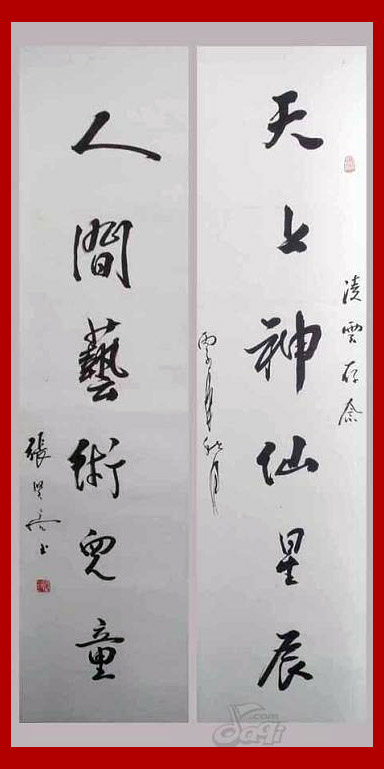 凌雲存念
天上神仙星辰
人間藝術兒童
張
書